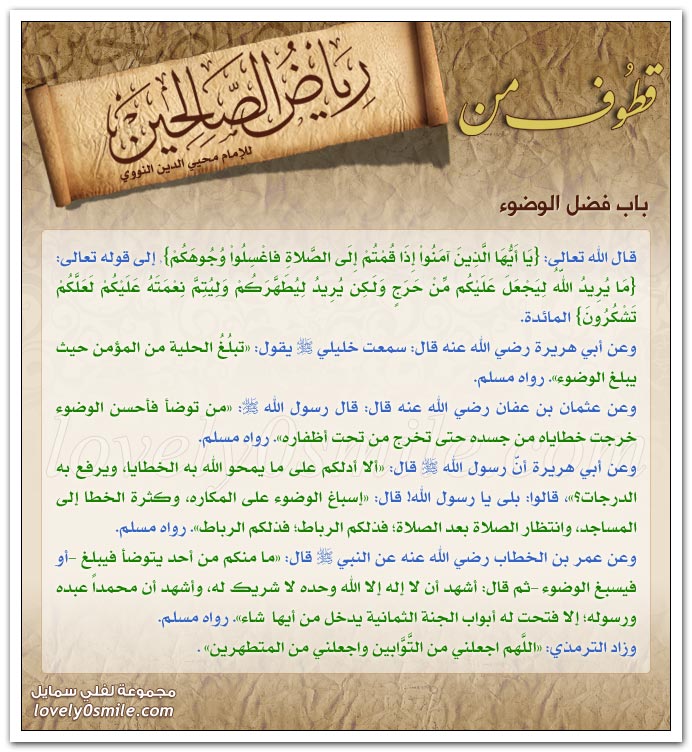 قطوف من
رياض الصالحين
للإمام محيي الدين النووي
باب فضل الوضوء
قال الله تعالى: {يَا أَيُّهَا الَّذِينَ آمَنُواْ إِذَا قُمْتُمْ إِلَى الصَّلاةِ فاغْسِلُواْ وُجُوهَكُمْ}. إلى قوله تعالى:
{مَا يُرِيدُ اللَّهُ لِيَجْعَلَ عَلَيْكُم مِّنْ حَرَجٍ وَلَكِن يُرِيدُ لِيُطَهِّرَكُمْ وَلِيُتِمَّ نِعْمَتَهُ عَلَيْكُمْ لَعَلَّكُمْ
تَشْكُرُونَ} المائدة.
وعن أبي هريرة رضي الله عنه قال: سمعت خليلي ﷺ يقول: «تبلُغُ الحلية من المؤمن حيث
يبلغ الوضوء». رواه مسلم.
وعن عثمان بن عفان رضي الله عنه قال: قال رسول الله ﷺ: «من توضأ فأحسن الوضوء
خرجت خطاياه من جسده حتى تخرج من تحت أظفاره». رواه مسلم.
وعن أبي هريرة أنّ رسول الله ﷺ قال: «ألا أدلكم على ما يمحو الله به الخطايا، ويرفع به
الدرجات؟»، قالوا: بلى يا رسول الله! قال: «إسباغ الوضوء على المكاره، وكثرة الخطا إلى
المساجد، وانتظار الصلاة بعد الصلاة؛ فذلكم الرباط؛ فذلكم الرباط». رواه مسلم.
وعن عمر بن الخطاب رضي الله عنه عن النبي ﷺ قال: «ما منكم من أحد يتوضأ فيبلغ -أو
فيسبغ الوضوء -ثم قال: أشهد أن لا إله إلا الله وحده لا شريك له، وأشهد أن محمداً عبده
ورسوله؛ إلا فتحت له أبواب الجنة الثمانية يدخل من أيها شاء». رواه مسلم.
وزاد الترمذي: «اللَّهم اجعلني من التَّوَّابين واجعلني من المتطهرين» .
lovely0smile.com
مجموعة لفلي سمايل
lovely0smile.com